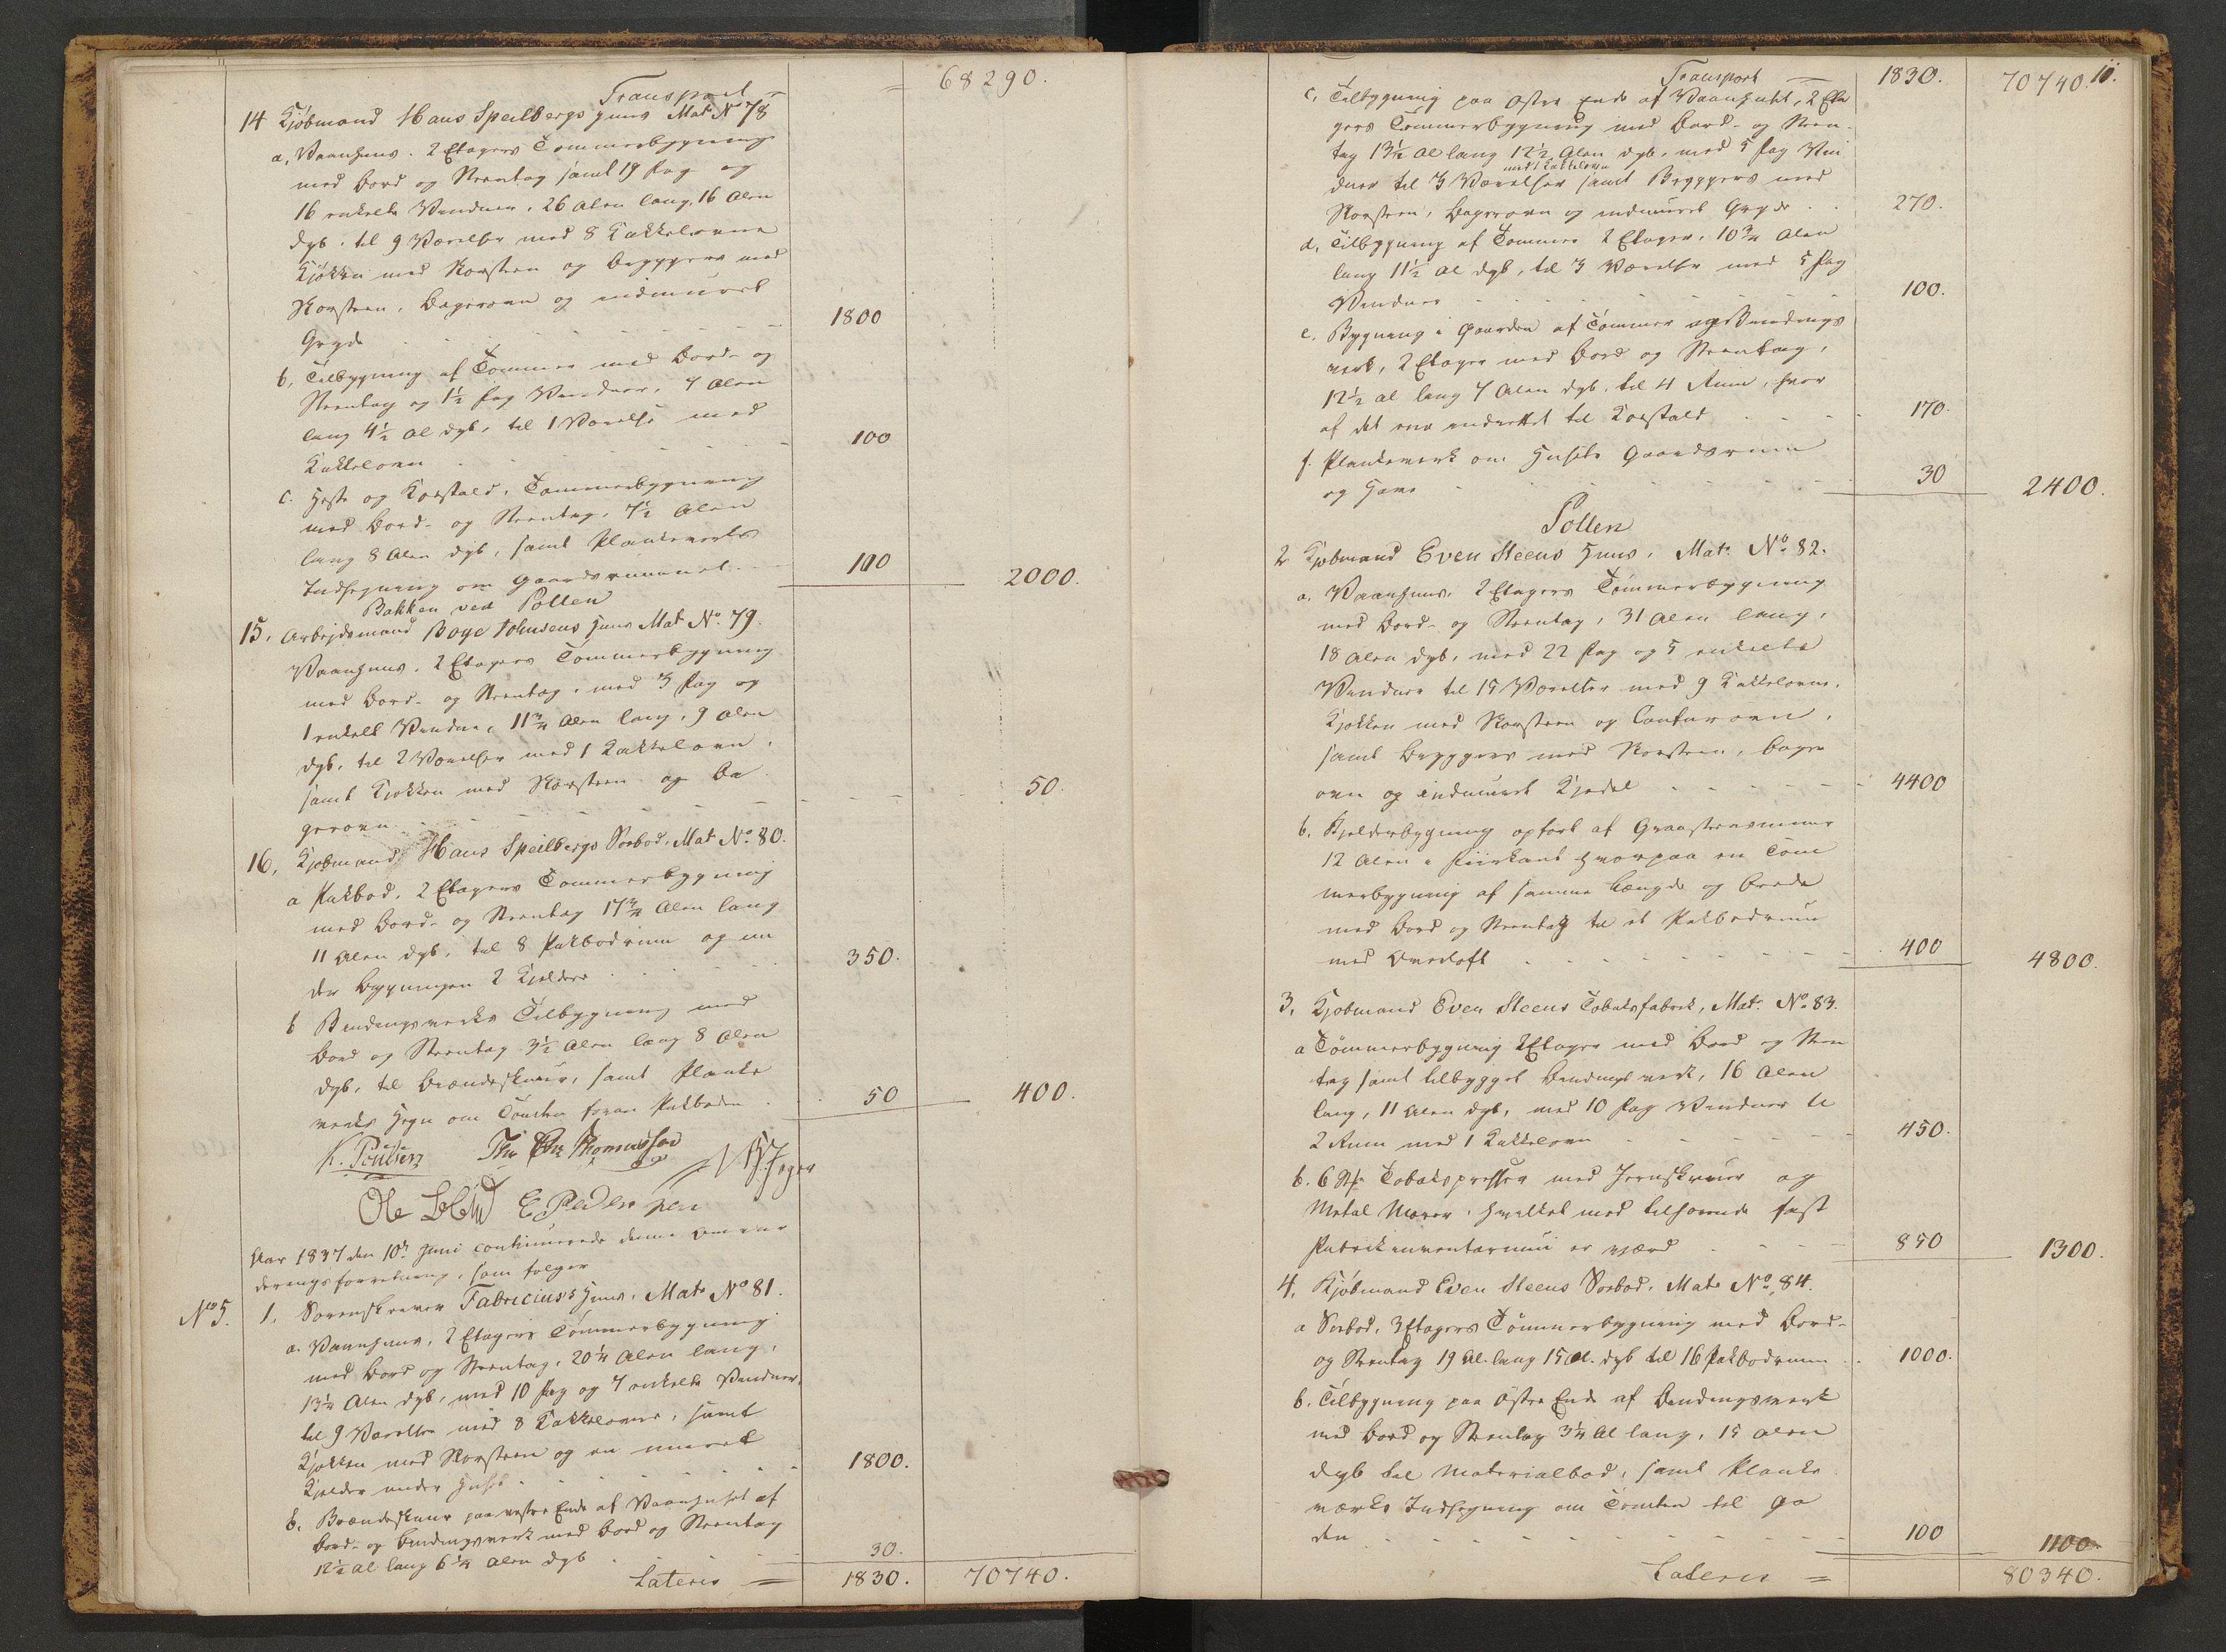 Transport = = 68290.
14 Kjöbmand Hans Speilbergs Huus Mat. No 78
a. Vaanhuus. 2 Etagers Tømmerbygning
med Bord og Steentag samt 19 Fag og
16 enkelte Vinduer, 26 Alen lang, 16 Alen
dyb, til 9 Værelser med 8 Kakkelovne
Kjökken med Skorsteen og Bryggers med
Skorsteen, Bagerovn og indmuret
Gryde 1800
b, Tilbygning af Tømmer med Bord- og
Steentag og 1½ Fag Vinduer, 7 Alen
lang 4½ Al dyb, til 1 Værelse med
Kakkelovn 100
c. Heste og Kostald, Tømmerbygning
med Bord- og Steentag, 7½ Alen
lang 8 Alen dyb, samt Plankeverks
Indhegning om Gaardsrummet 100 2000.
Bakken ved Pollen
15. Arbejdsmand Boye Johnsens Huus Mat No. 79.
Vaanhuus, 2 Etagers Tømmerbygning
med Bord- og Steentag, med 3 Fag og
1 enkelt Vindue, 11¾ Alen lang, 9 Alen
dyb, til 2 Værelser med 1 Kakkelovn,
samt Kjøkken med Skorsteen og Ba
gerovn 50.
16. Kjøbmand Hans Speilbergs Søebod, Mat No. 80.
a Pakbod, 2 Etagers Tømmerbygning
med Bord- og Steentag 17¾ Alen lang
11 Alen dyb, til 8 Pakbodrum og un
der Bygningen 2 Kjeldere 350.
b Bindingsverks Tilbygning med
Bord og Steentag 3½ Alen lang 8 Alen
dyb, til Brændeskuur, samt Planke
verks Hegn om Tomten foran Pakboden 50 400.
K. Poulsen Thomassen
Ole E Pedersen
Aar 1837 den 10de Juni continuerede denne Omvur
deringsforretning, som følger
No 5. 1. Sorenskriver Fabricius's Huus, Mat. No 81.
a. Vaanhuus, 2 Etagers Tømmerbygning
med Bord og Steentag, 20¼ Alen lang,
13¼ Alen dyb, med 10 Fag og 7 enkelte Vinduer,
til 9 Værelser med 8 Kakkelovne, samt
Kjøkken med Skorsteen og en muret
Kjelder under Huset 1800.
b. Brændeskuur paa vestre Ende af Vaanhuset af
Bord- og Bindingsverk med Bord og Steentag
12½ al lang 6¼ Alen dyb 30.
Lateris = 1830. 70740.
11.
Transport 1830. 70740.
c, Tilbygning paa østre Ende af Vaanhuset, 2 Eta
gers Tømmerbygning med Bord- og Steen-
tag 13½ Al lang 12½ Alen dyb, med 5 Fag Vin
med 1 Kakkelovn
duer til 3 Værelser samt Bryggers med
Skorsteen, Bagerovn og indmuret Gryde 270.
d, Tilbygning af Tømmer 2 Etager, 10¾ Alen
lang 11½ al dyb, til 3 Værelser med 5 Fag
Vinduer 100.
e. Bygning i Gaarden af Tømmer og Bindings
verk, 2 Etager med Bord og Steentag,
12½ al lang 7 Alen dyb, til 4 Rum, hvor
af det ene indrettet til Kostald 170.
f. Plankeverk om Husets Gaardsrum
og Have 30 2400.
Pollen
2 Kjøbmand Even Steens Huus, Mat. No. 82.
a. Vaanhuus, 2 Etagers Tømmerbygning
med Bord- og Steentag, 31 Alen lang,
18 Alen dyb, med 22 Fag og 5 enkelte
Vinduer til 15 Værelser med 9 Kakkelovne,
Kjøkken med Skorsteen og Conturovn,
samt Bryggers med Skorsteen, Bager
ovn og indmuret Kjedel 4400
b. Kjelderbygning opført af Graasteensmuur
12 Alen i Fiirkant hvorpaa en Tøm
merbygning af samme Længde og Brede
med Bord og Steentag til et Pakbodrum
med Overloft 400 4800.
3, Kjøbmand Even Steens Tobaksfabrik, Mat. No. 83.
a Tømmerbygning 2 Etager med Bord og Steen
tag samt tilbygget Bindingsverk, 16 Alen
lang, 11 Alen dyb, med 10 Fag Vinduer til
2 Rum med 1 Kakkelovn 450.
b. 6 Stk Tobakspresser med Jernskruer og
Metal Mører, hvilket med tilhørende fast
Fabrikinventarium er værd 850 1300.
4. Kjøbmand Even Steens Søebod, Mat. No. 84.
a Søebod, 3 Etagers Tømmerbygning med Bord-
og Steentag 19 Al. lang 15 Al. dyb til 16 Pakbodrum 1000.
b. Tilbygning paa Østre Ende af Bindingsverk
med Bord og Steentag 3¼ Al lang, 15 Alen
dyb til Materialbod, samt Planke
værks Indhegning om Tomten til Ga
den 100 1100
Lateris = 80340.